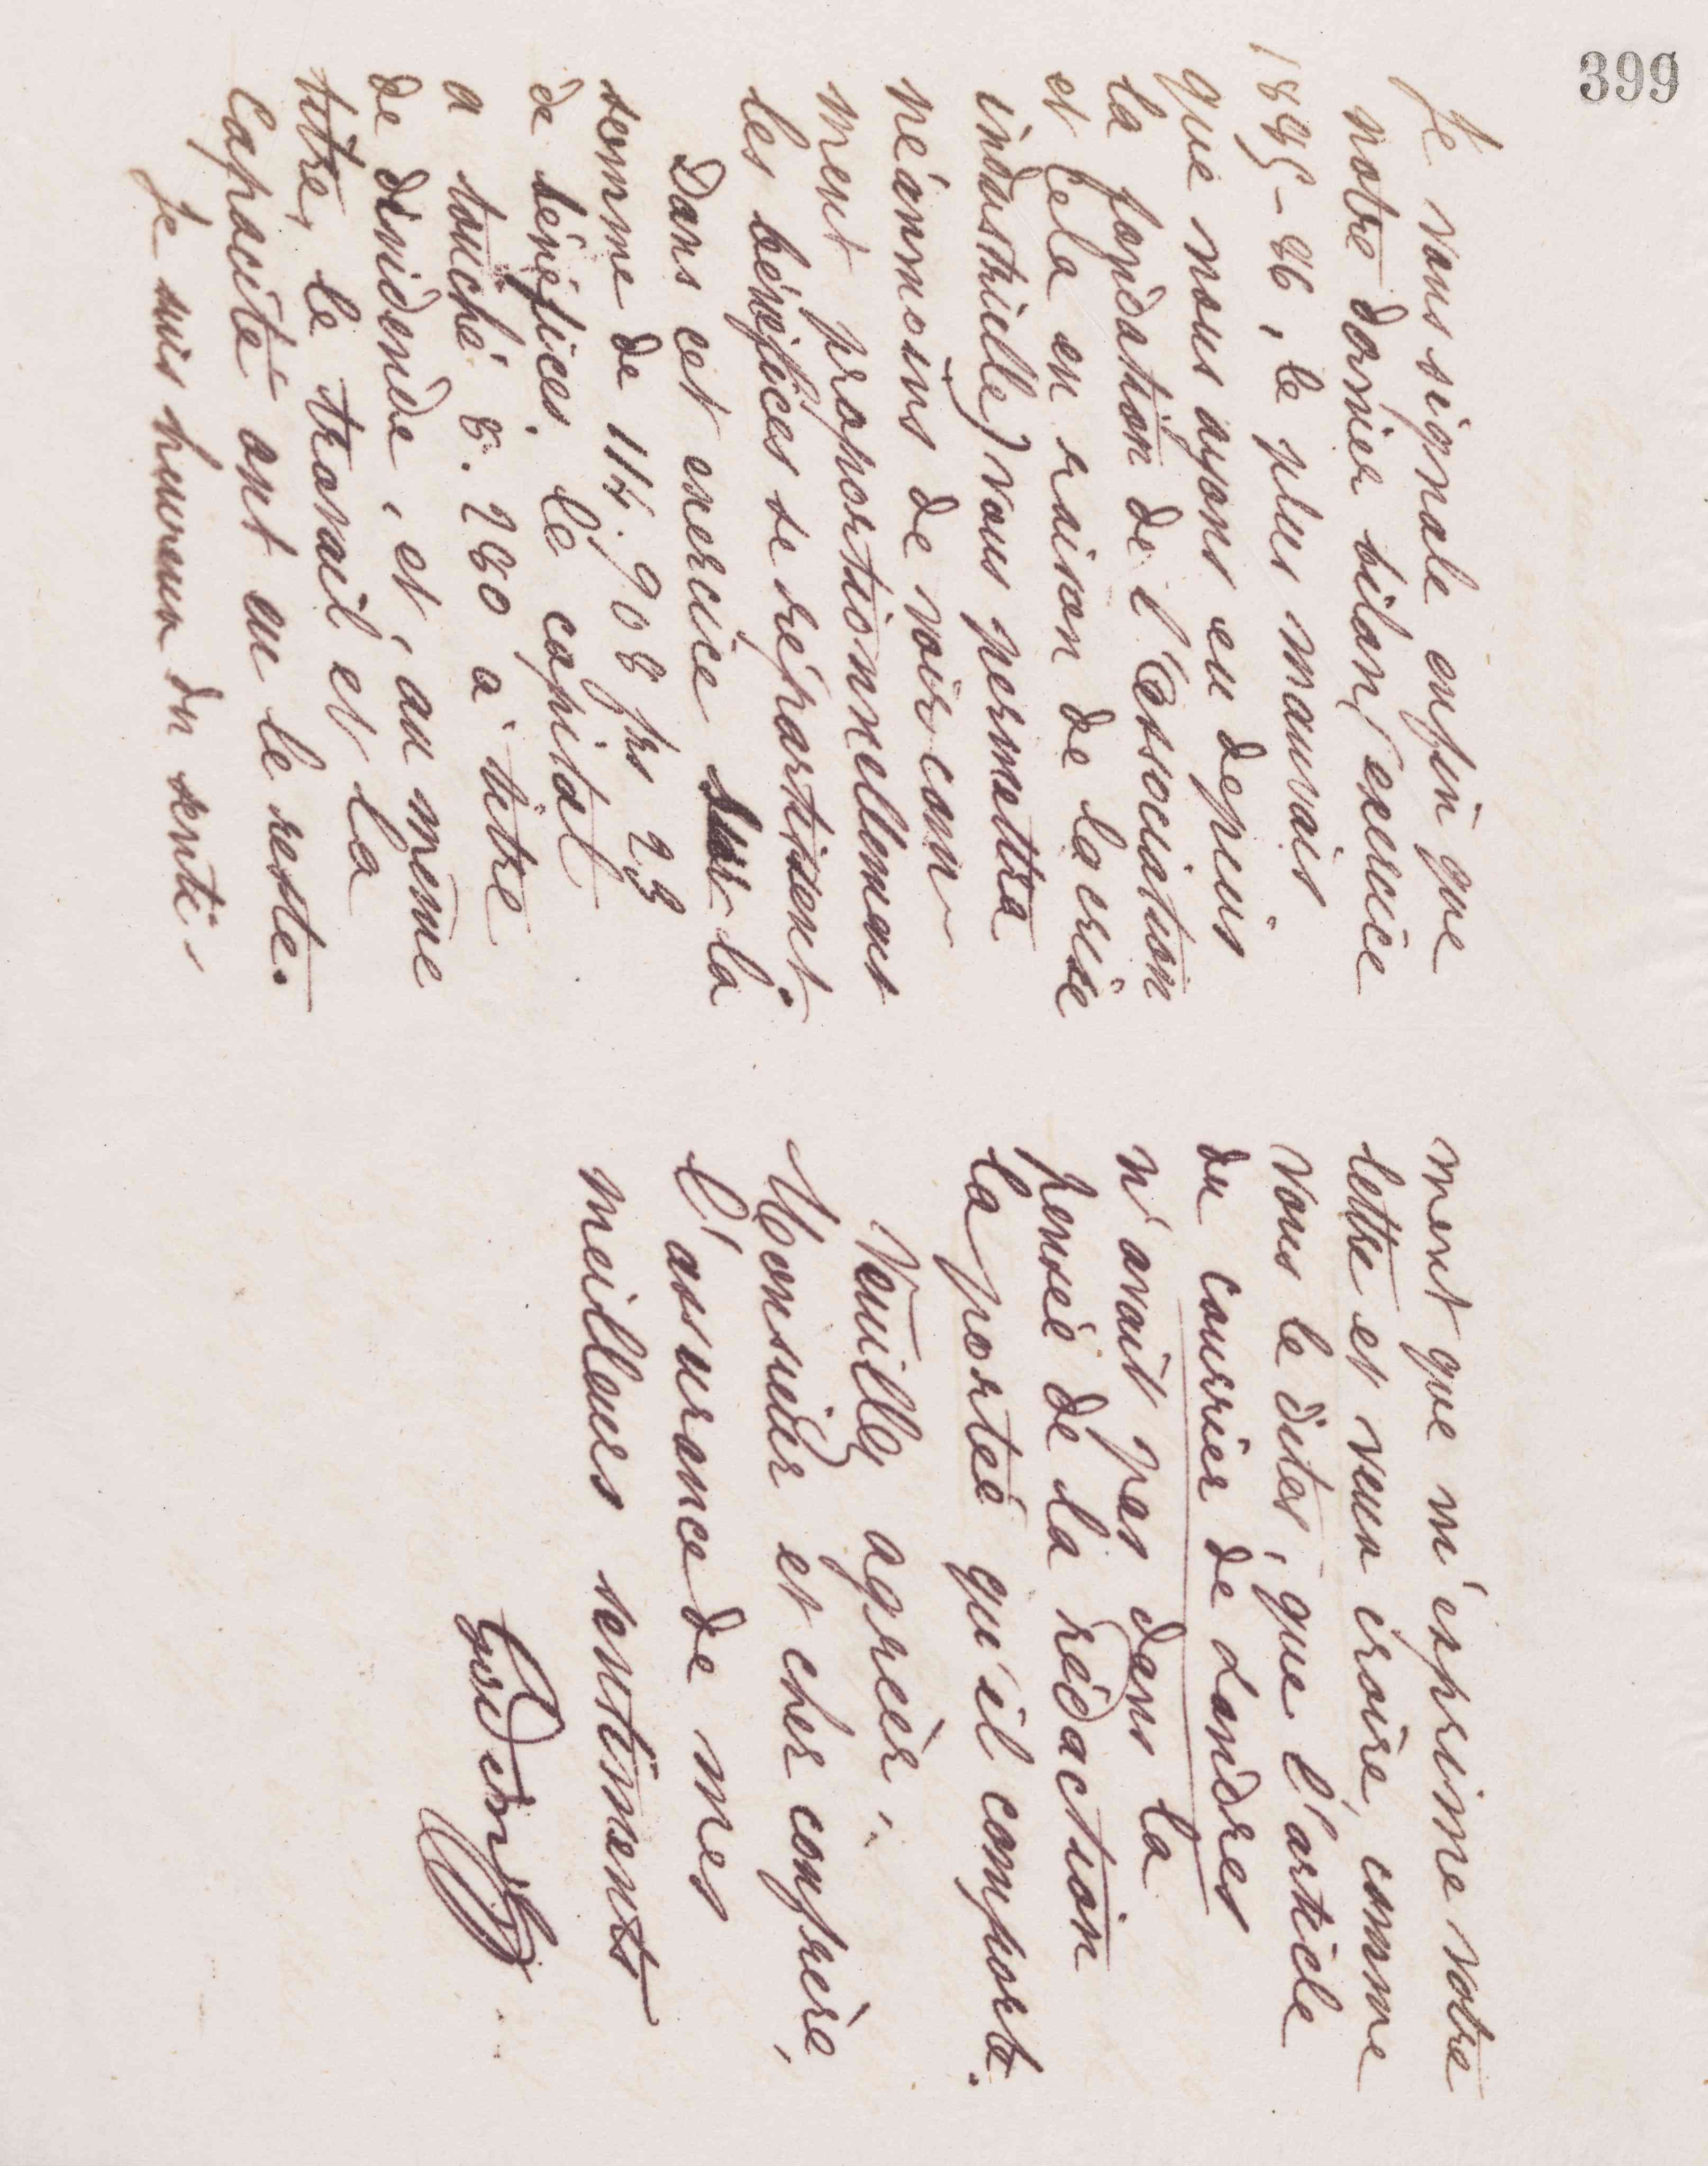 399
Je vous signale enfin que
notre dernier bilan (exercice
1885-86, le plus mauvais
que nous ayons eu depuis
la fondation de l'Association
et cela en raison de la crise
industrielle) vous permettra
néanmoins de voir com-
ment proportionnellement
les bénéfices se répartissent.
Dans cet exercice sur la
somme de 114.908 frs 23
de bénéfices, le capital
a touché 8.280 à titre
de dividende, et, au même
titre, le travail et la
Capacité ont eu le reste.
Je suis heureux du senti-
ment que m'exprime votre
lettre et veux croire, comme
vous le dites, que l'article
du courrier de Londres
n'avait pas dans la
pensée de la rédaction
la portée qu'il comporte.
Veuillez agréer,
Monsieur et cher confrère,
l'assurance de mes
meilleurs sentiments
Godin